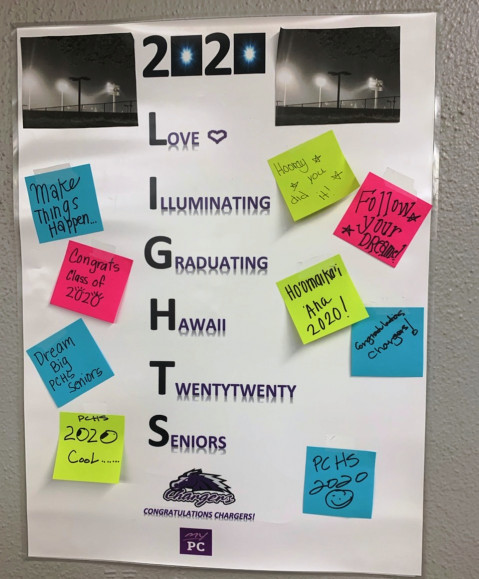 2020
LOVE
ILLUMINATING
GRADUATING
HAWAII
TWENTYTWENTY
SENIORS
Chargers
CONGRATULATIONS CHARGERS!
my
PC
Make
Things
Happen...
Congrats
Class of
2020
Dream
Big
PCHS
Seniors
PCHS
2020
Cool......
Hooray
you
did it!
Follow
your
DREAMS!
Ho'omaika'i
'Ana
2020!
Congratulations
Chargers!
PCHS
2020